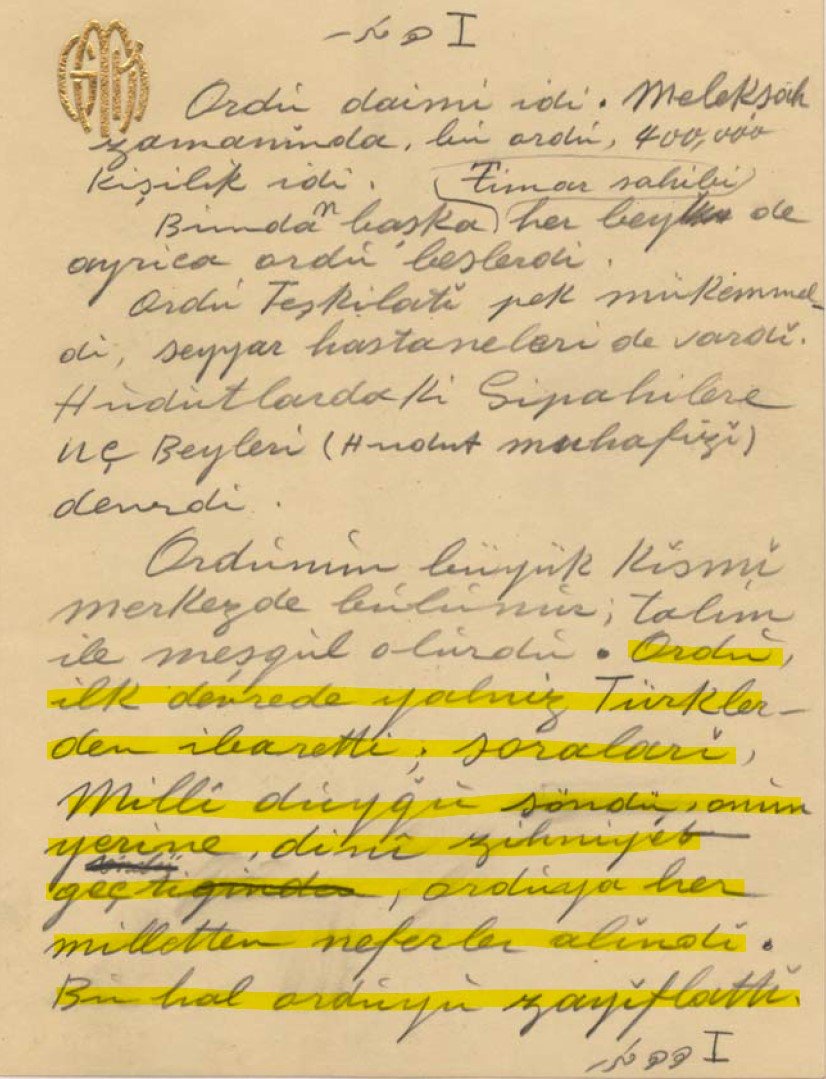 Ordu daimi idi. Melekşah
zamanında, bir ordu, 400,000
kişilik idi. (Timar sahibi)
Bundan başka her bey de
ayrıca ordu beslerdi.
Ordu Teşkilatı pek mükemmel-
di, seyyar hastaneleri de vardı.
Hudutlardaki Sipahilere
Uç Beyleri (Hudut muhafızı)
denirdi.
Ordunun büyük kısmı
merkezde bulunur; talim
ile meşgul olurdu. Ordu,
ilk devrede yalnız Türkler-
den ibaretti; soraları,
Milli duyğu söndü, onun
yerine, dinî zihniyet
geçti, orduya her
milletten neferler alındı.
Bu hal orduyu zayıflattı.